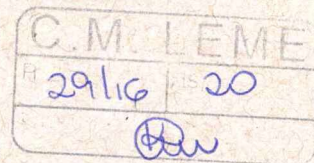 C.M. LEME
29/16 20